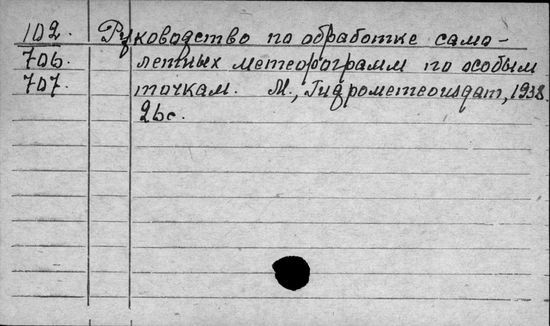 102. Руководство по обработке само-
706. летных метеорограмм по особым
707. точкам. М., Гидрометеоиздат, 1938.
26с.